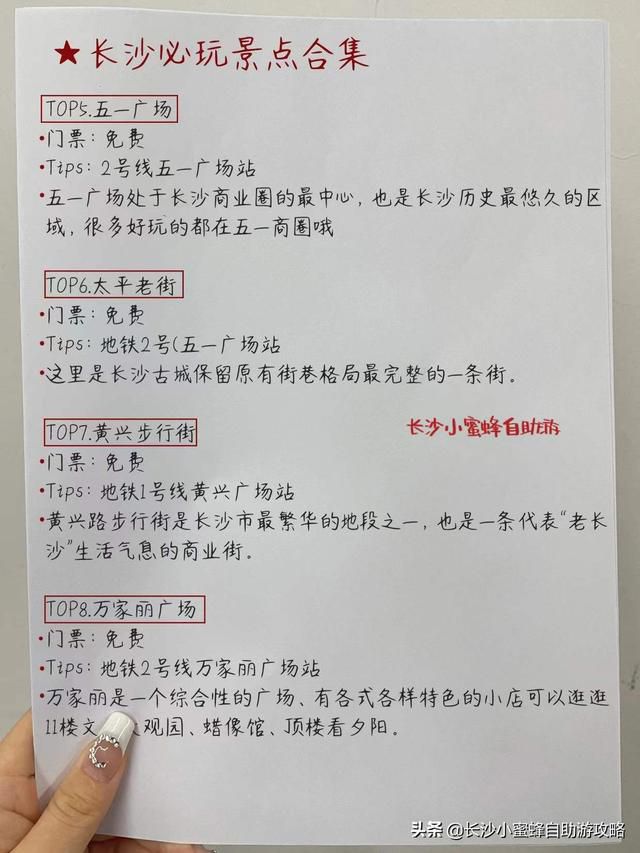 ★长沙必玩景点合集
TOP5.五一广场
•门票：免费
•Tips：2号线五一广场站
•五一广场处于长沙商业圈的最中心，也是长沙历史最悠久的区
域，很多好玩的都在五一商圈哦
TOP6.太平老街
•门票：免费
•Tips：地铁2号(五一广场站
•这里是长沙古城保留原有街巷格局最完整的一条街。
TOP7.黄兴步行街
长沙小蜜蜂自助游
•门票：免费
•Tips：地铁1号线黄兴广场站
•黄兴路步行街是长沙市最繁华的地段之一，也是一条代表“老长
沙”生活气息的商业街。
TOP8.万家丽广场
•门票：免费
•Tips：地铁2号线万家丽广场站
•万家丽是一个综合性的广场、有各式各样特色的小店可以逛逛
11楼文 观园、蜡像馆、顶楼看夕阳。
头条 @长沙小蜜蜂自助游攻略